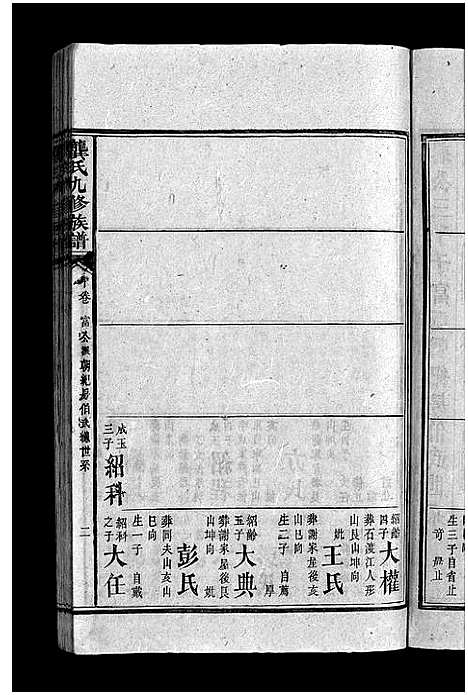 生三子自省止
奇 學止
紹齡
四子
大權
葬石渡江人形
山艮山坤向
妣
王氏
葬謝家屋後亥
山巳向
生二子 自萬
厚
紹齡
五子
大典
葬謝家屋後艮
山坤向 妣
彭氏
葬同夫山亥山
巳向
生一子 自戴
紹科
之子
大任
成玉
三子
紹科
龔氏九修族譜
卷
世系
二